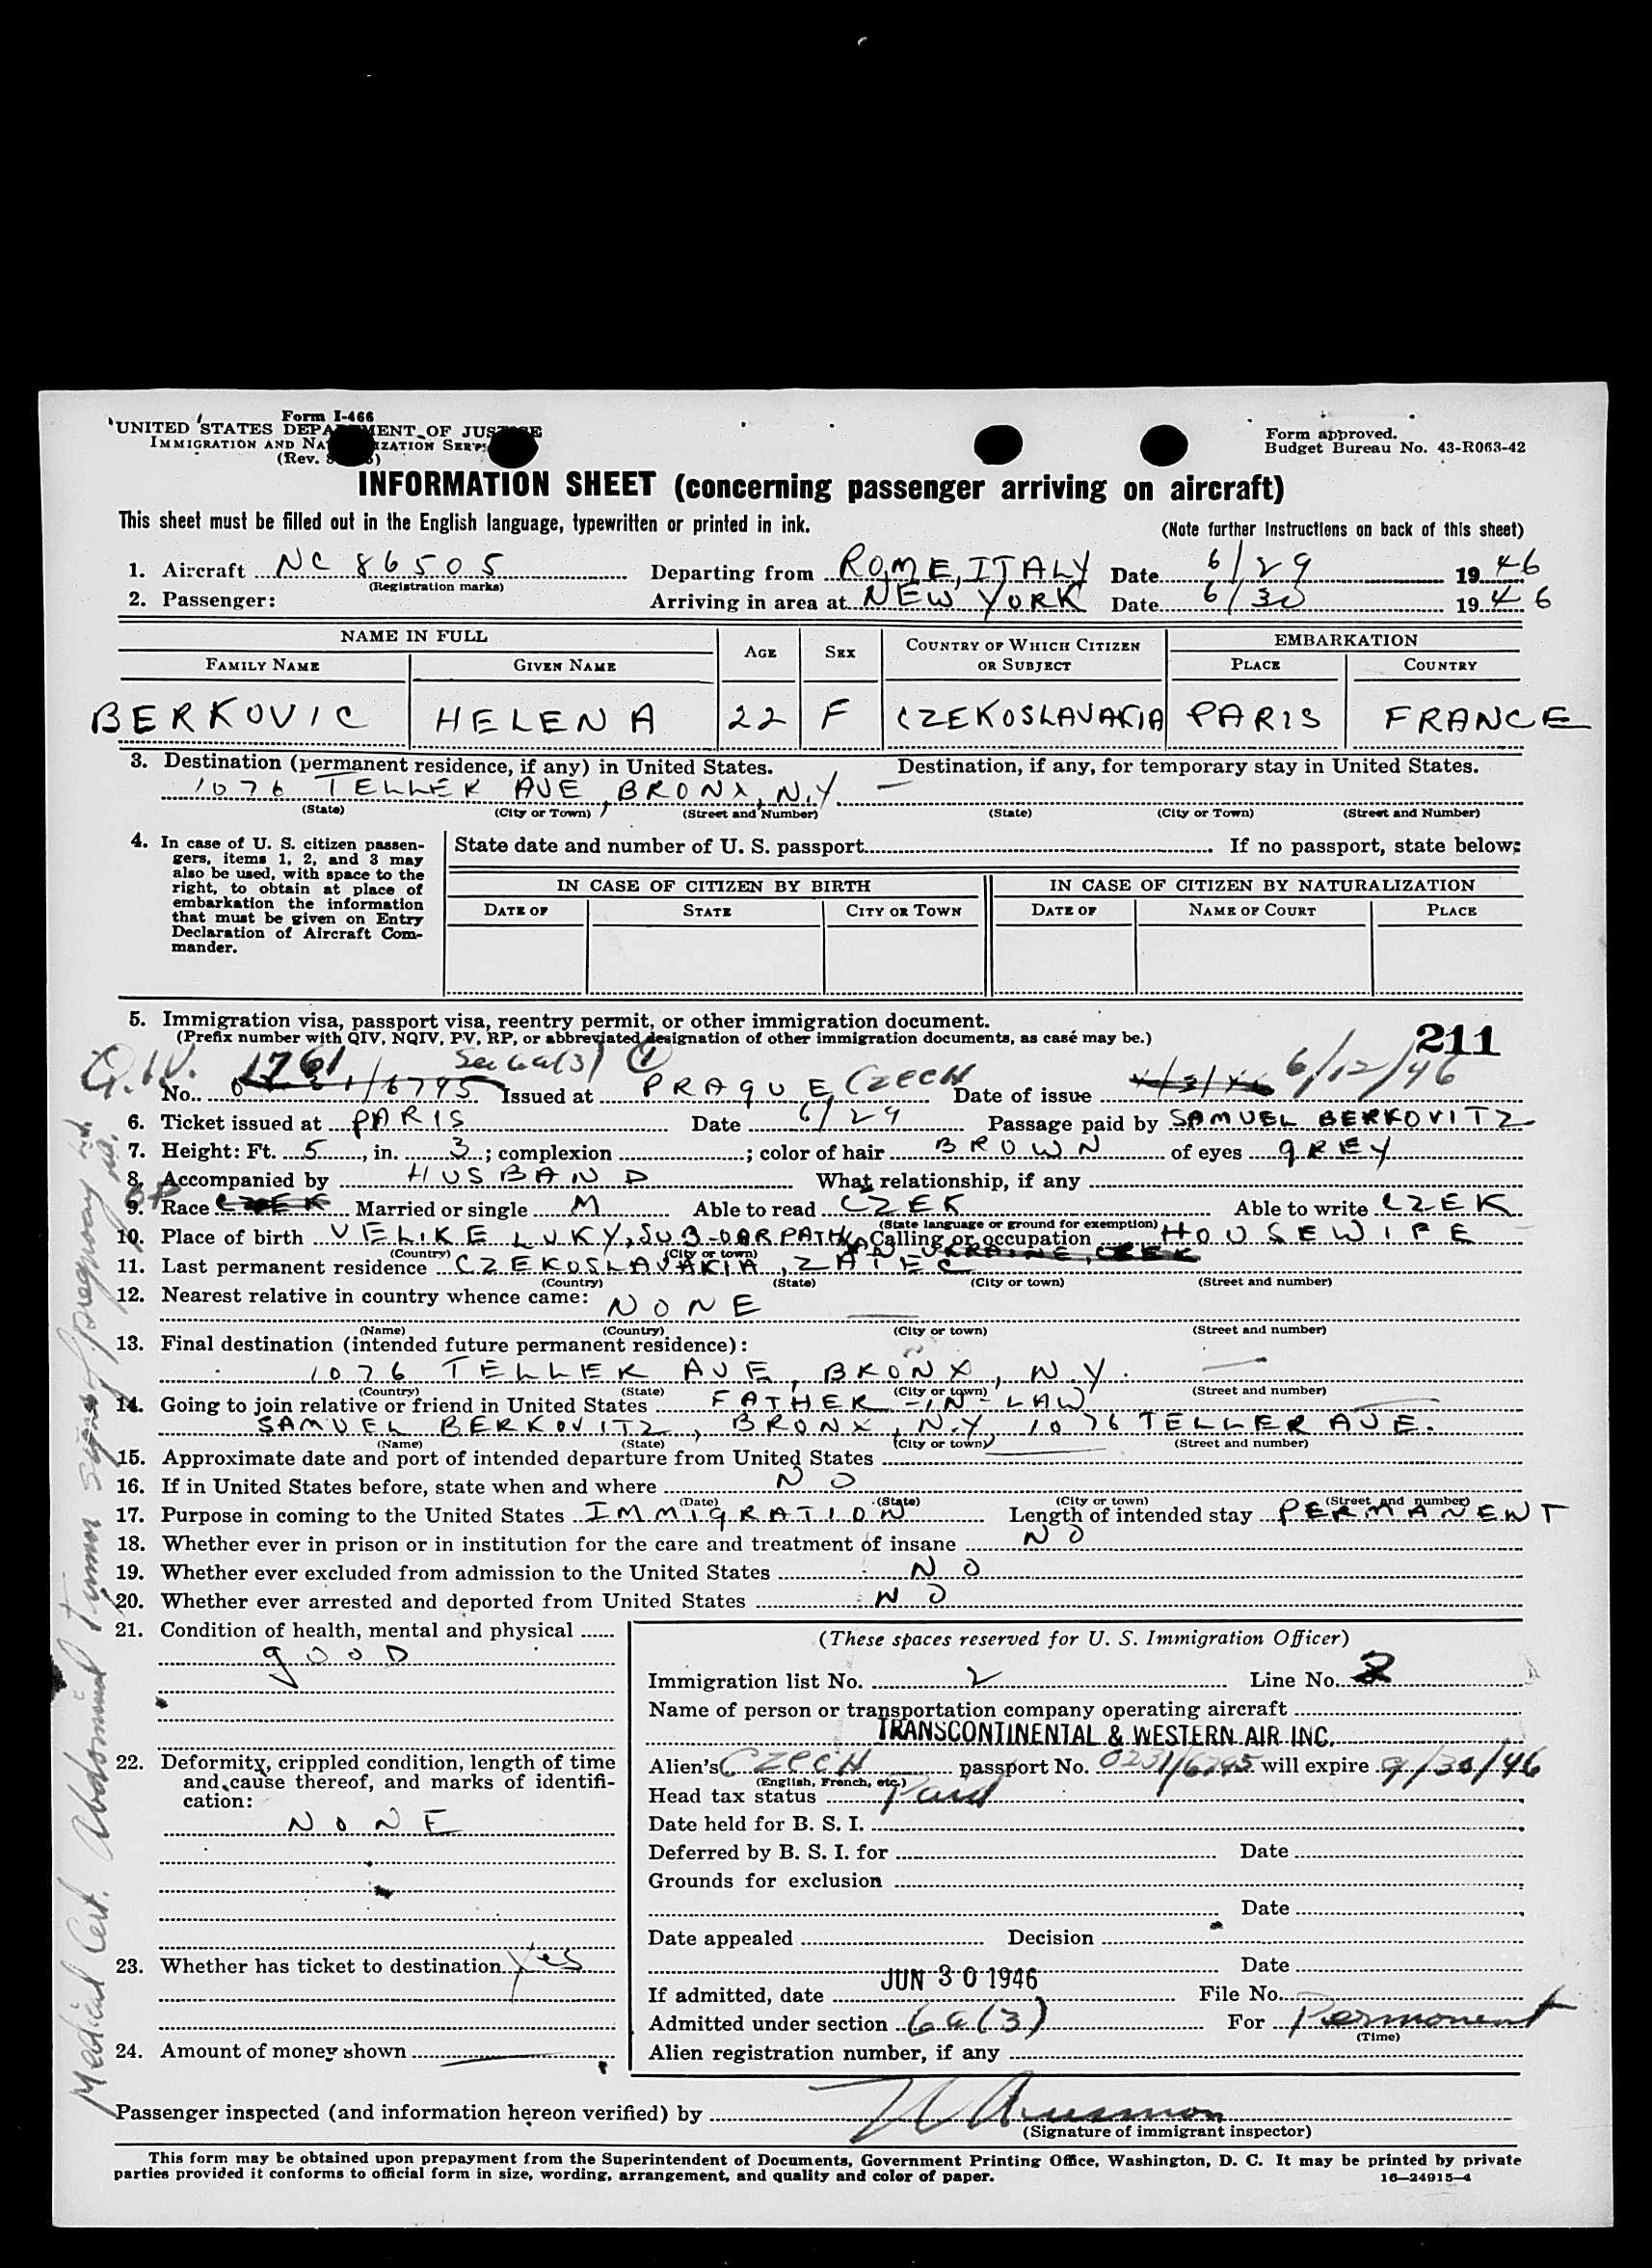 Form I-466
UNITED STATES DEPARTMENT OF JUSTICE
IMMIGRATION AND NATURALIZATION SERVICE
(Rev.
Form approved.
Budget Bureau No. 43-R063-42
INFORMATION SHEET (concerning passenger arriving on aircraft)
This sheet must be filled out in the English language, typewritten or printed in ink.
(Note further instructions on back of this sheet)
1. Aircraft NC 86505 Departing from ROME, ITALY Date 6/29 1946
(Registration marks)
2. Passenger: Arriving in area at NEW YORK Date 6/30 1946
NAME IN FULL AGE SEX COUNTRY OF WHICH CITIZEN OR SUBJECT EMBARKATION
FAMILY NAME GIVEN NAME PLACE COUNTRY
BERKOVIC HELENA 22 F CZEKOSLAVAKIA PARIS FRANCE
3. Destination (permanent residence, if any) in United States. Destination, if any, for temporary stay in United States.
1076 TELLER AVE, BRONX, N.Y. —
(State) (City or Town) (Street and Number) (State) (City or Town) (Street and Number)
4. In case of U. S. citizen passengers, items 1, 2, and 3 may also be used, with space to the right, to obtain at place of embarkation the information that must be given on Entry Declaration of Aircraft Commander.
State date and number of U. S. passport If no passport, state below:
IN CASE OF CITIZEN BY BIRTH IN CASE OF CITIZEN BY NATURALIZATION
DATE OF STATE CITY OR TOWN DATE OF NAME OF COURT PLACE
5. Immigration visa, passport visa, reentry permit, or other immigration document.
(Prefix number with QIV, NQIV, PV, RP, or abbreviated designation of other immigration documents, as case may be.)
211
Q.I.V. 1761 Sec 6a(3) 1
No. 0231/6795 Issued at PRAGUE, CZECH Date of issue 6/12/46
6. Ticket issued at PARIS Date 6/29 Passage paid by SAMUEL BERKOVITZ
7. Height: Ft. 5, in. 3; complexion ; color of hair BROWN of eyes GREY
8. Accompanied by HUSBAND What relationship, if any
9. Race CZEK Married or single M Able to read CZEK Able to write CZEK
(State language or ground for exemption)
10. Place of birth VELIKE LUKY, SUB-CARPATHIAN-UKRAINE, CZEK Calling or occupation HOUSEWIFE
(Country) (City or town)
11. Last permanent residence CZEKOSLAVAKIA, ZATEC
(Country) (State) (City or town) (Street and number)
12. Nearest relative in country whence came: NONE
(Name) (Country) (City or town) (Street and number)
13. Final destination (intended future permanent residence):
1076 TELLER AVE, BRONX, N.Y.
(Country) (State) (City or town) (Street and number)
14. Going to join relative or friend in United States FATHER-IN-LAW
SAMUEL BERKOVITZ, BRONX, N.Y. 1076 TELLER AVE.
(Name) (State) (City or town) (Street and number)
15. Approximate date and port of intended departure from United States
16. If in United States before, state when and where NO
(Date) (State) (City or town) (Street and number)
17. Purpose in coming to the United States IMMIGRATION Length of intended stay PERMANENT
18. Whether ever in prison or in institution for the care and treatment of insane NO
19. Whether ever excluded from admission to the United States NO
20. Whether ever arrested and deported from United States NO
21. Condition of health, mental and physical
GOOD
22. Deformity, crippled condition, length of time and cause thereof, and marks of identification:
NONE
23. Whether has ticket to destination Yes
24. Amount of money shown —
(These spaces reserved for U. S. Immigration Officer)
Immigration list No. 2 Line No. 2
Name of person or transportation company operating aircraft
TRANSCONTINENTAL & WESTERN AIR INC.
Alien's CZECH passport No. 0231/6795 will expire 9/30/46
(English, French, etc.)
Head tax status Paid
Date held for B. S. I.
Deferred by B. S. I. for Date
Grounds for exclusion
Date
Date appealed Decision
Date
If admitted, date JUN 30 1946 File No.
Admitted under section 6a(3) For Permanent
(Time)
Alien registration number, if any
Passenger inspected (and information hereon verified) by
(Signature of immigrant inspector)
This form may be obtained upon prepayment from the Superintendent of Documents, Government Printing Office, Washington, D. C. It may be printed by private
parties provided it conforms to official form in size, wording, arrangement, and quality and color of paper. 16—24915-4
Medical Cert. Abdominal tumor signs of pregnancy